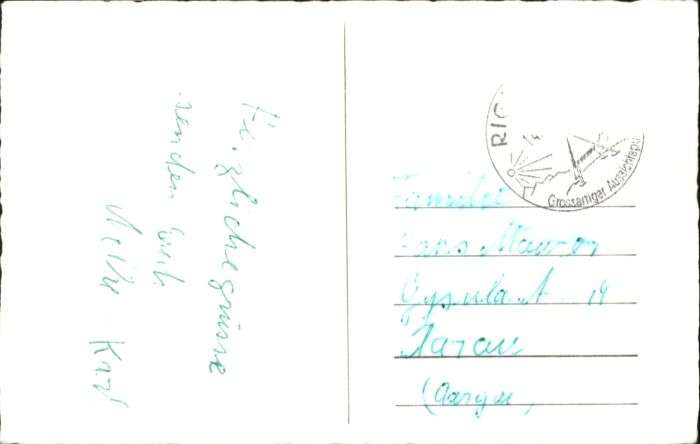 Herzlichegrüsse
senden Euch
Karl
RIG
Grossartiger Aussichtspu
Familie
Hans Maurer
Gysula
19
Aarau
(Aargau)